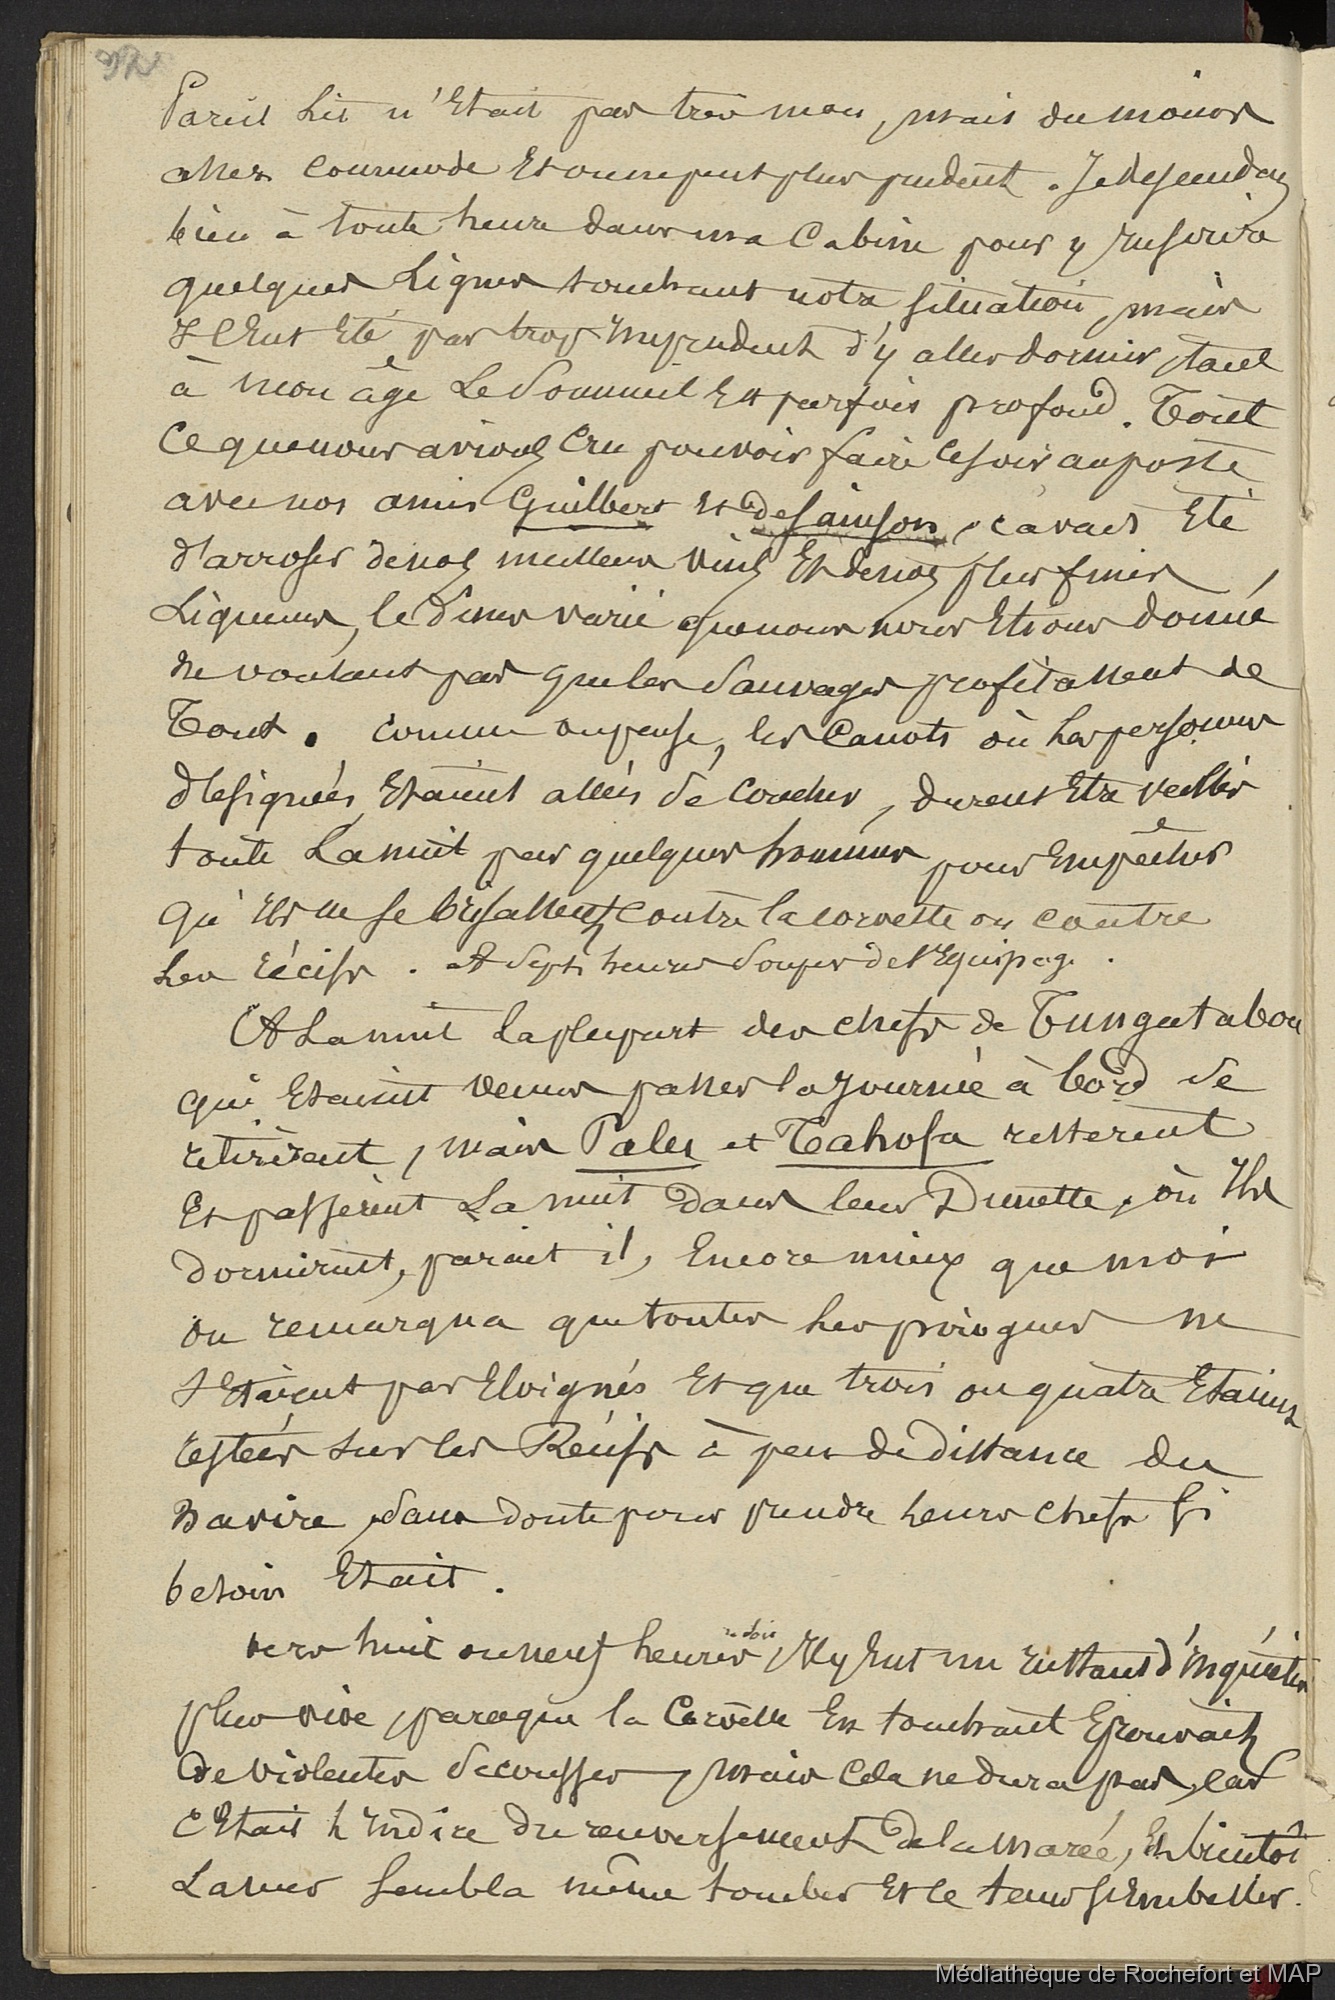 Pareil Lit n'Etait pas très mou, mais du moins
assez commode Et on ne peut plus prudent. Je descendais
bien à toute heure dans ma Cabine pour y Inscrire
quelques Lignes touchant notre situation, mais
Il Eut Eté par trop Imprudent d'y aller dormir, tant
à mon âge Le Sommeil Est parfois profond. Tout
Ce que nous avions Cru pouvoir faire Ce soir au poste
avec nos amis Guilbert Et de Sainson, c'avait Eté
d'arroser de nos meilleurs vins Et de nos plus fines
Liqueurs, le diner varié que nous nous Etions donné
ne voulant pas que les Sauvages profitassent de
Tout. Comme on pense, les Canots où Les personnes
désignées Etaient allées se coucher, durent Etre veillés
toute La nuit par quelques hommes pour Empêcher
qu'ils ne se brisassent Contre la corvette ou contre
Les récifs. A Sept heures Souper de l'Equipage.
A La nuit La plupart des chefs de Tungatabou
qui Etaient venus passer la Journée à bord se
retirèrent, mais Palu et Tahofa resterent
Et passèrent La nuit dans leur Dunette, où Ils
dormirent, parait il, Encore mieux que moi
on remarqua que toutes Les pirogues ne
s'Etaient pas Eloignés Et que trois ou quatre Etaient
restées sur les Récifs à peu de distance du
Navire, Sans doute pour prendre Leurs chefs si
besoin Etait.
vers huit ou neuf heures du soir, Il y Eut un Instant d'Inquiétude
plus vive, parceque la Corvette En touchant Eprouvait
de violentes Secousses, mais Cela ne dura pas, car
C'Etait L'Indice du renversement de la marée, Et bientôt
La mer Sembla même tomber Et le tems s'Embellir.
Médiathèque de Rochefort et MAP